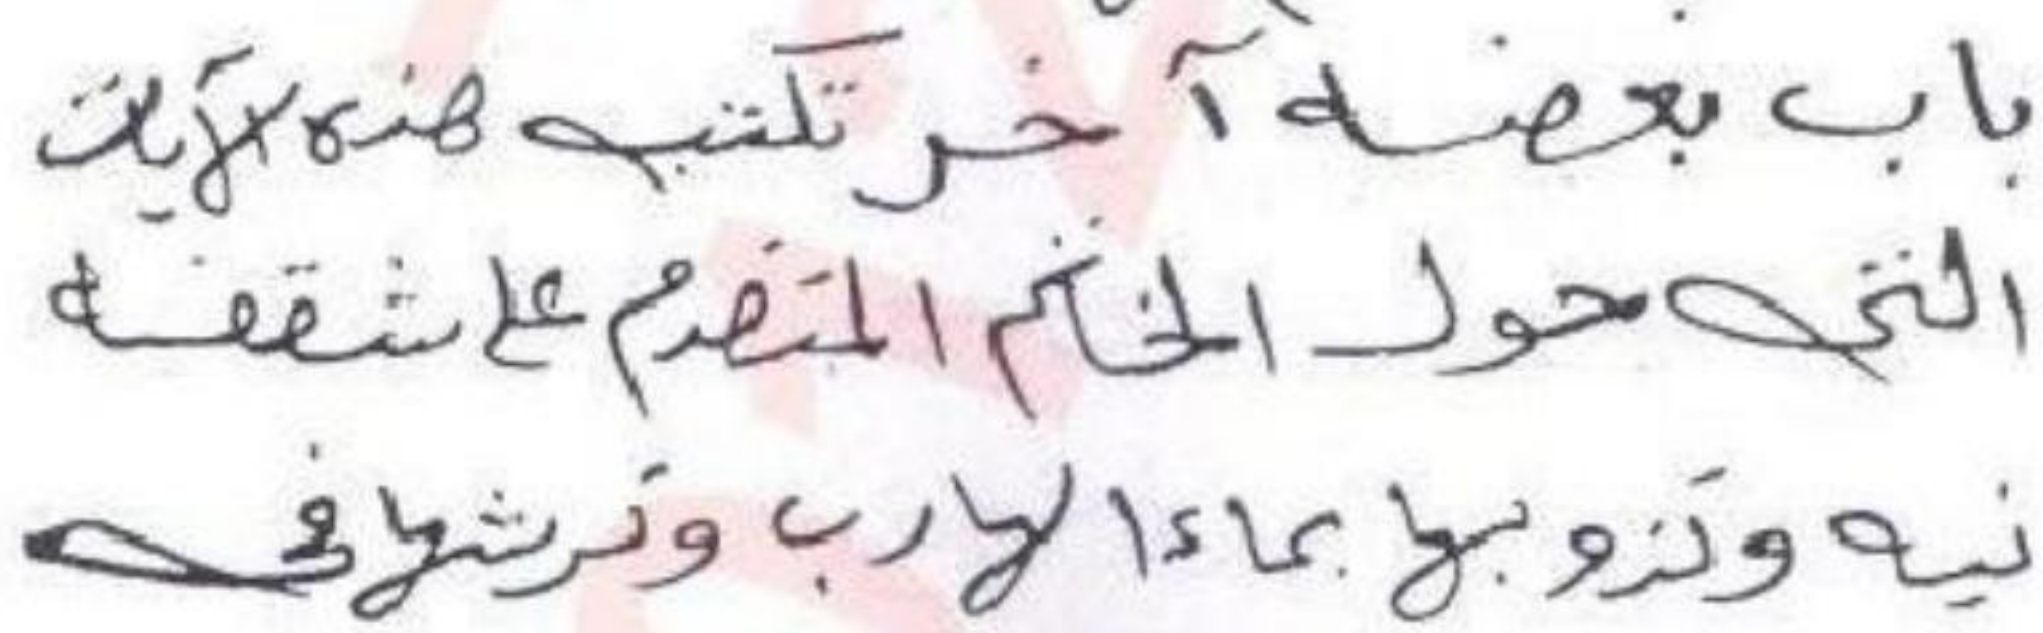 باب بغضه آخر تكتب هذه الآيات
التي حول الخاتم المتقدم على شقفه
نيه وتذوبها بماء الهارب وترشها في